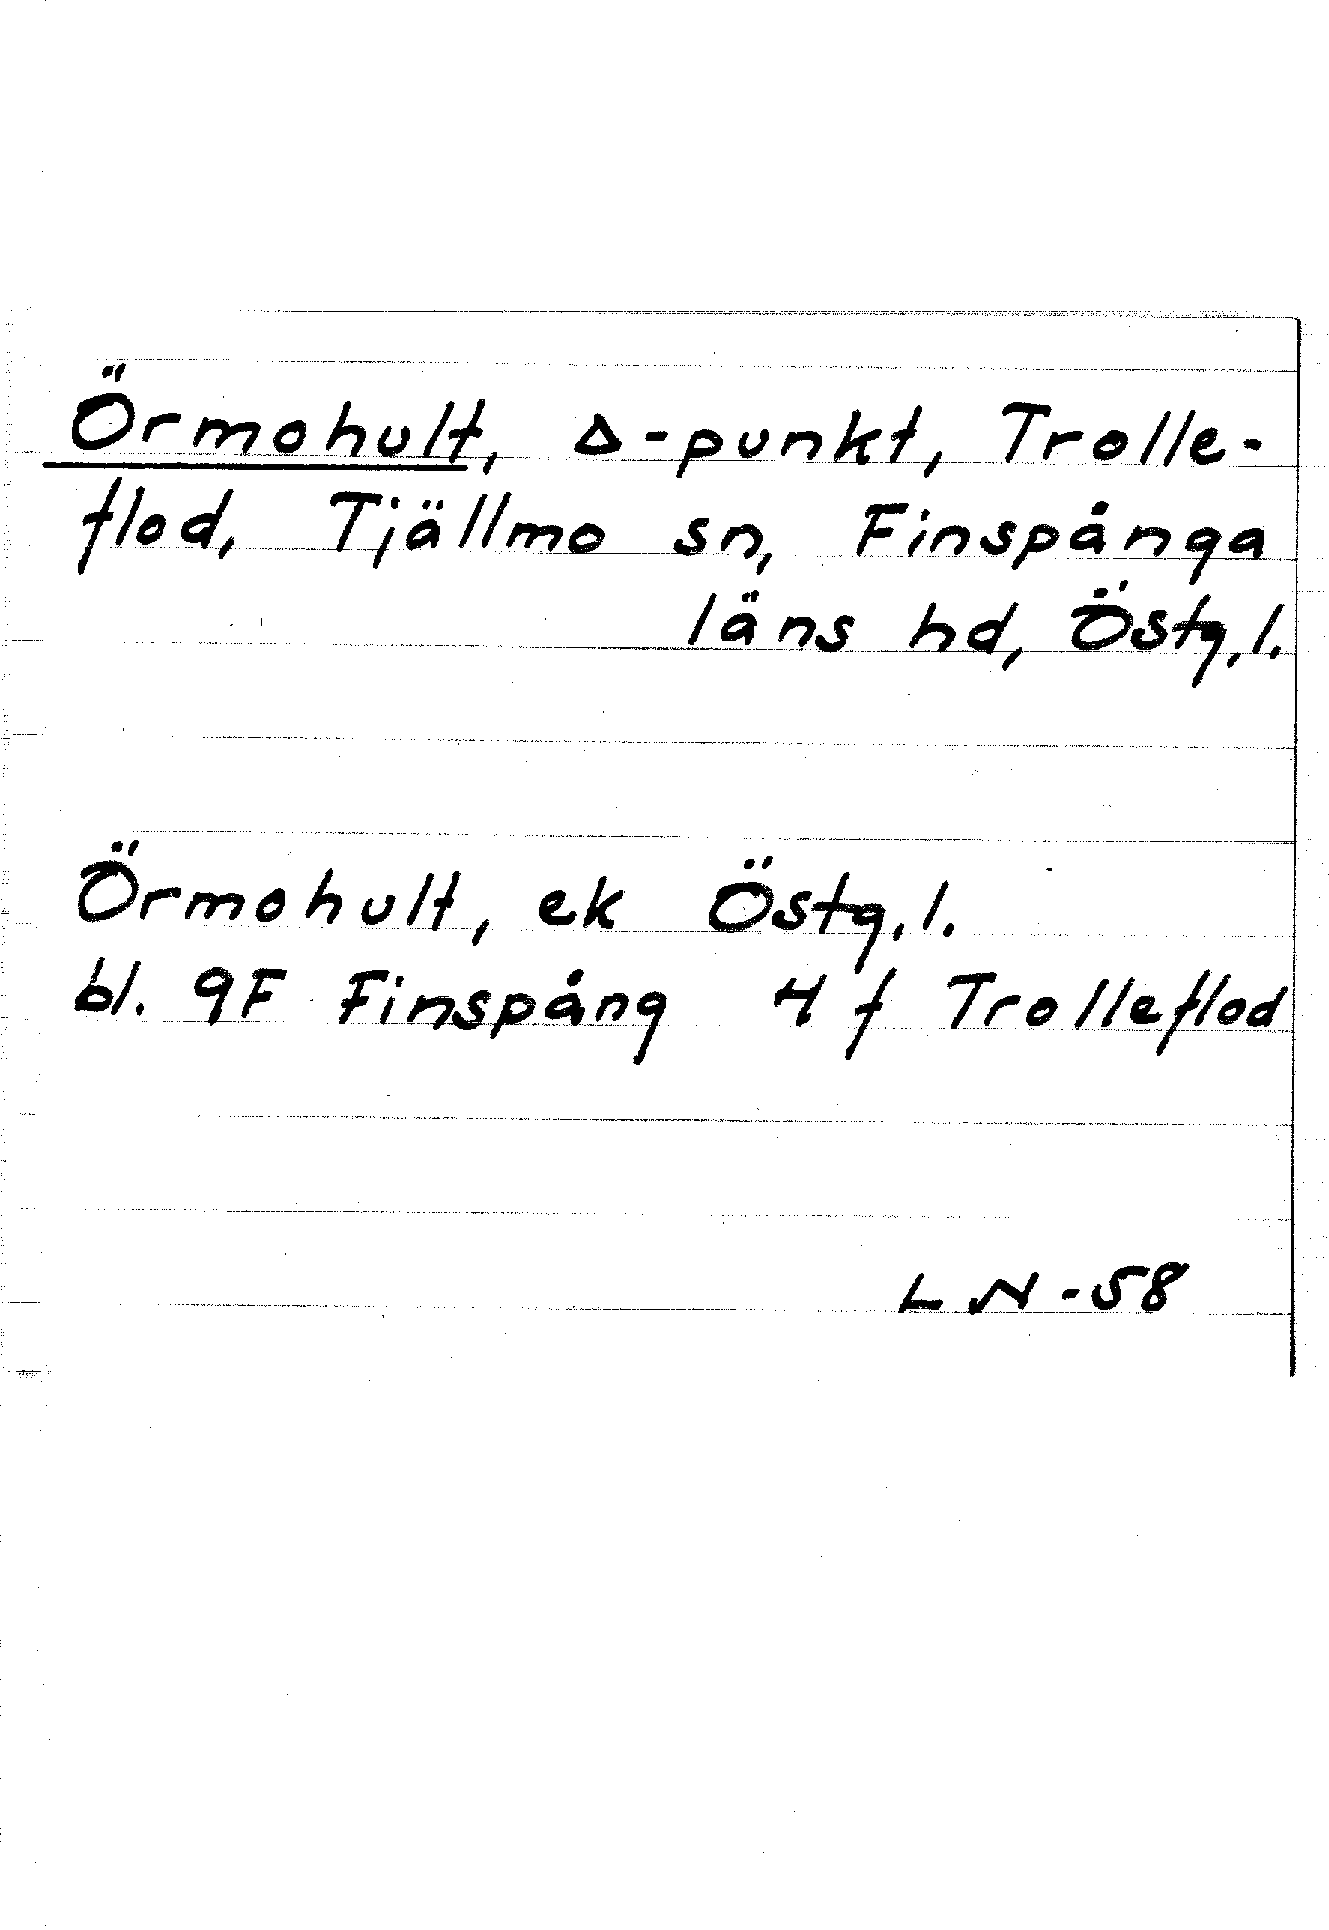 Örmohult, Δ-punkt, Trolle-
flod, Tjällmo sn, Finspånga
läns hd, Östg.l.
Örmohult, ek Östg.l.
bl. 9F Finspång 4 f Trolleflod
LN-58